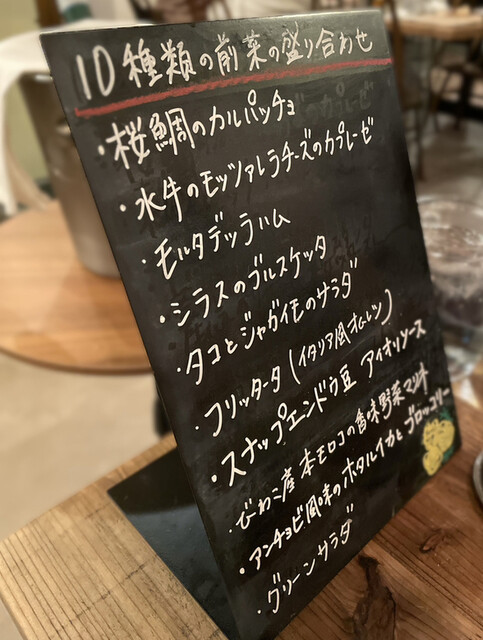 10種類の前菜の盛り合わせ
・桜鯛のカルパッチョ
・水牛のモッツァレラチーズのカプレーゼ
・モルタデッラハム
・シラスのブルスケッタ
・タコとジャガイモのサラダ
・フリッタータ(イタリア風オムレツ)
・スナップエンドウ豆 アイオリソース
・びわこ産本モロコの香味野菜マリネ
・アンチョビ風味のホタルイカとブロッコリー
・グリーンサラダ